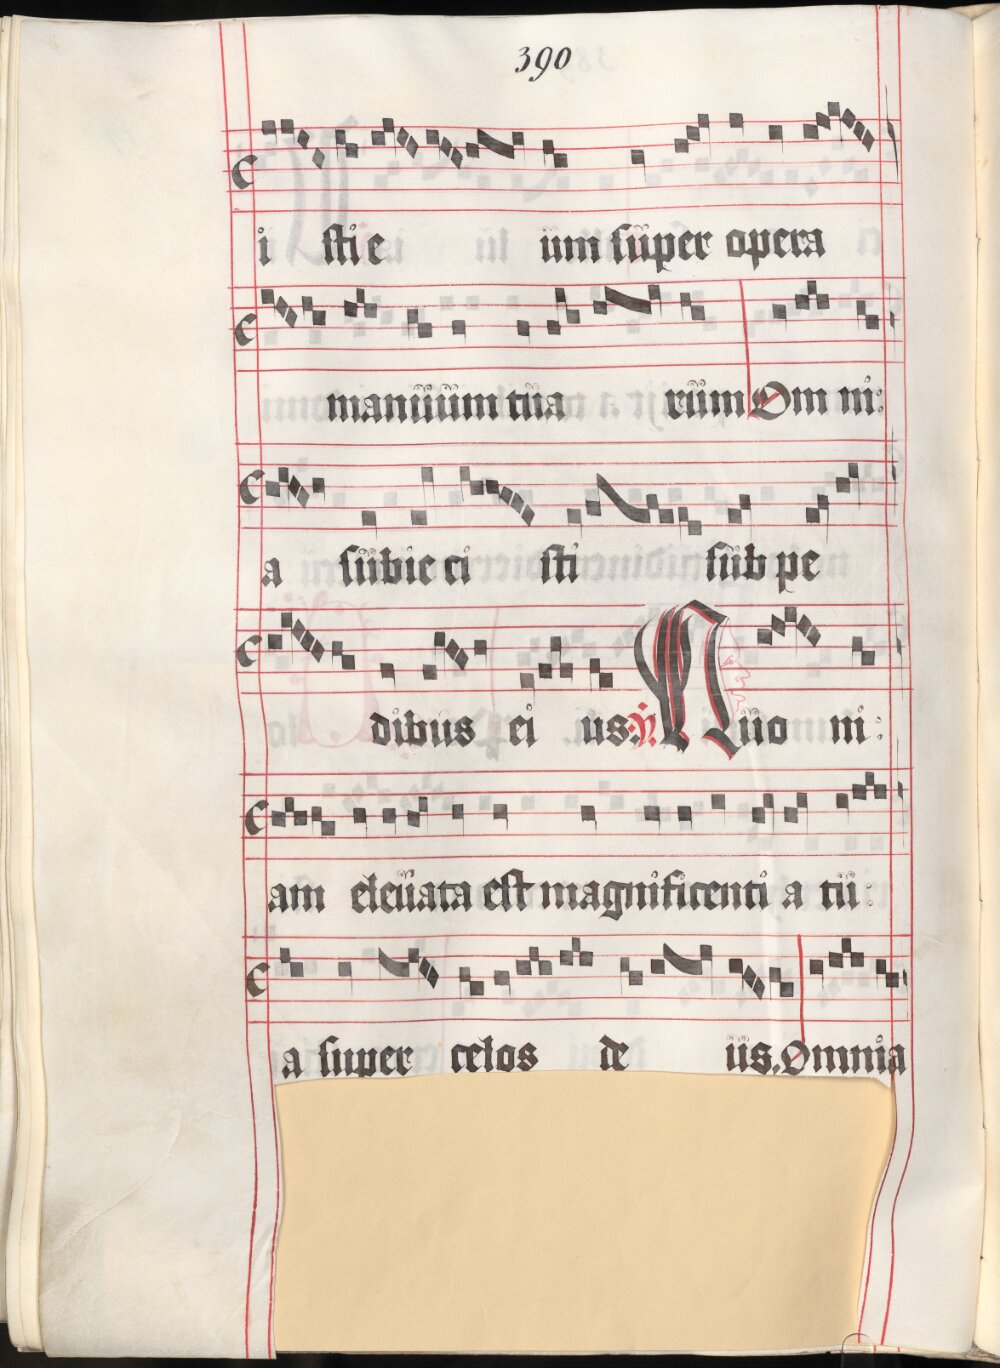 390
i sti e um super opera
manuum tua rum Om ni:
a subie ci sti sub pe
dibus ei us: ℣. Quo ni:
am elevata est magnificenti a tu:
a super celos de us. Omnia